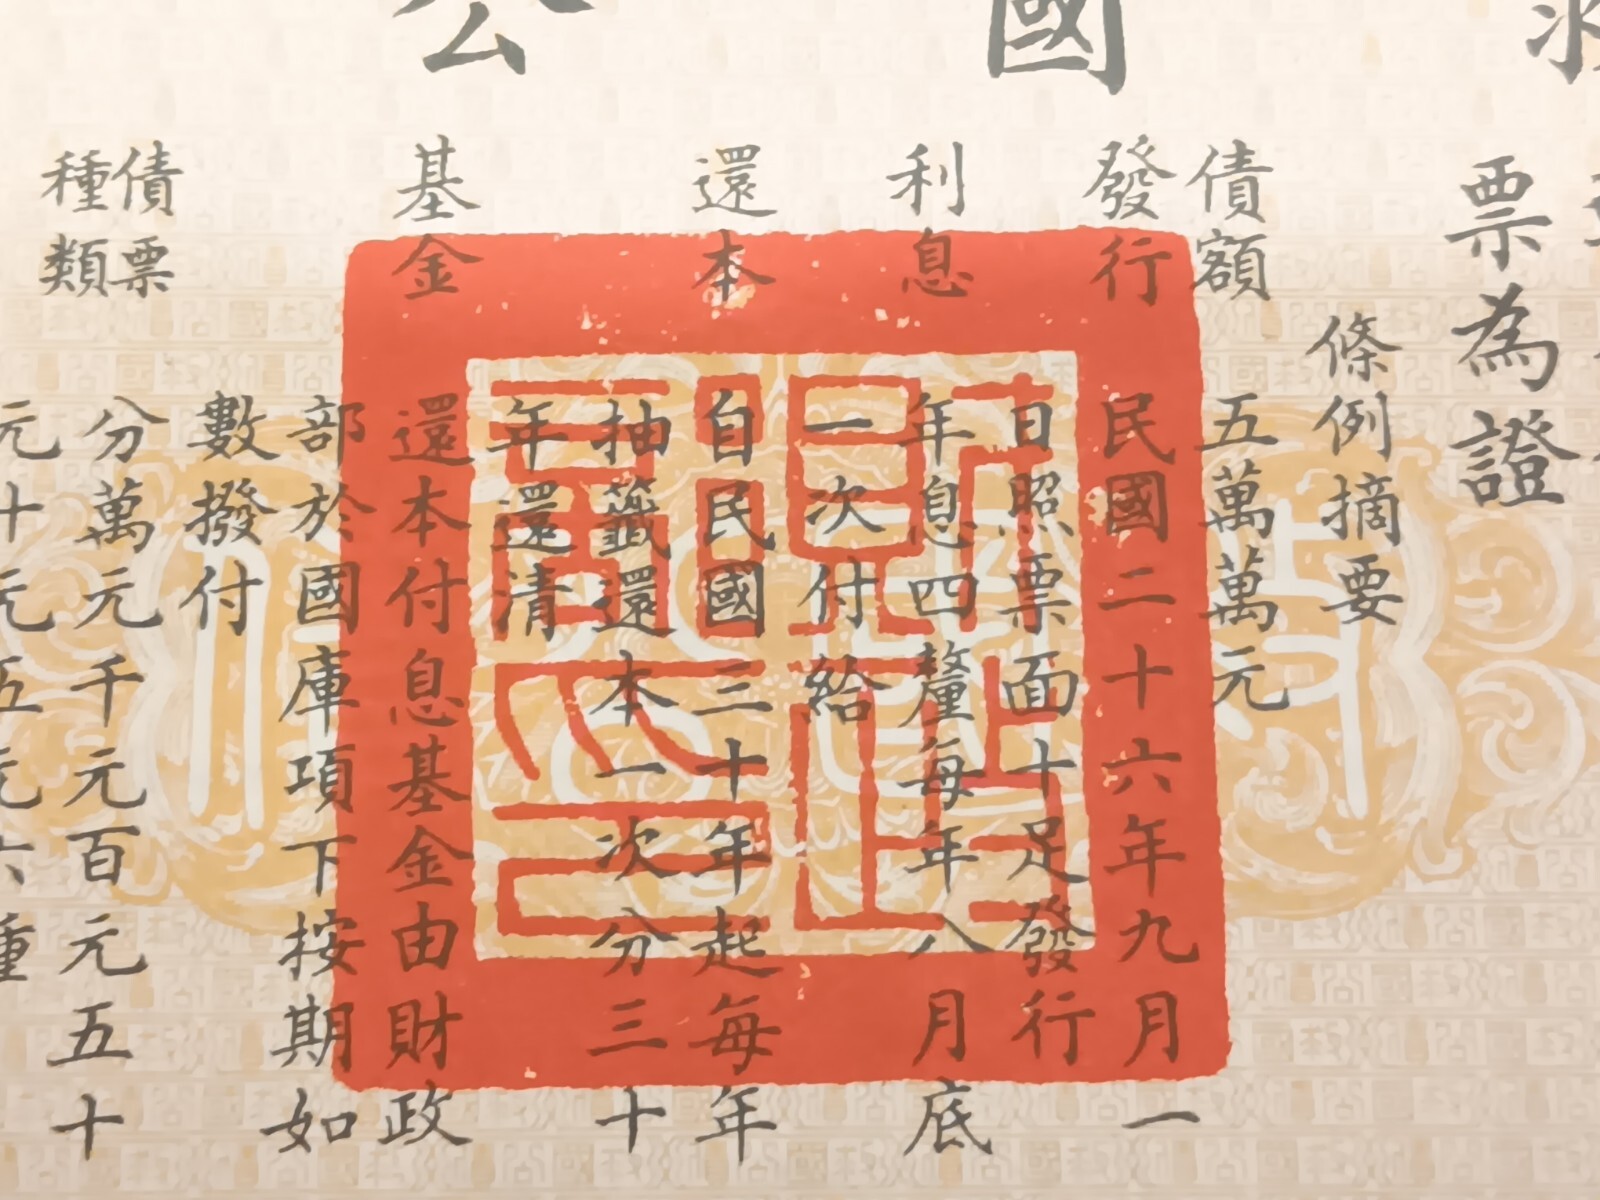 國
公
票為證
條例摘要
債額 五萬萬元
發行 民國二十六年九月一
日照票面十足發行
利息 年息四釐每年八月底
一次付給
還本 自民國三十年起每年
抽籤還本一次分三十
年還清
基金 還本付息基金由財政
部於國庫項下按期如
數撥付
債票
種類
分萬元千元百元五十
元十元五元六種